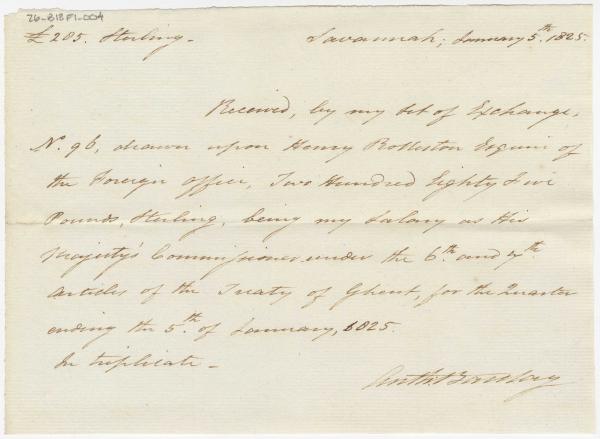 76-B18F1-004
£285. Sterling. Savannah; January 5.th 1825.
Received, by my Set of Exchange,
N.º 96, drawn upon Henry Rolleston Esquire of
the Foreign Office, Two Hundred Eighty Five
Pounds, Sterling, being my Salary as His
Majesty's Commissioner under the 6.th and 7.th
Articles of the Treaty of Ghent, for the Quarter
ending the 5.th of January, 1825.
In triplicate.
Anth.